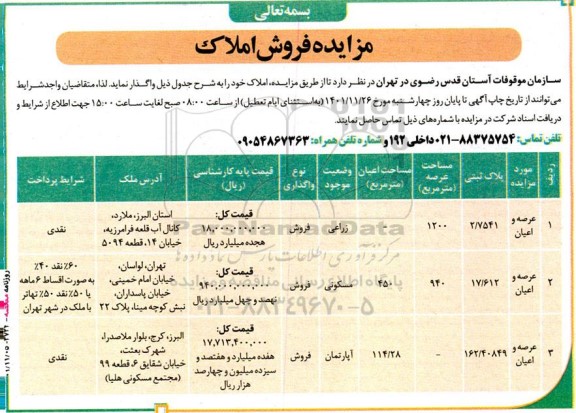 بسمه تعالی
مزایده فروش املاک
سازمان موقوفات آستان قدس رضوی در تهران در نظر دارد تا از طریق مزایده، املاک خود را به شرح جدول ذیل واگذار نماید. لذا، متقاضیان واجد شرایط
می‌توانند از تاریخ چاپ آگهی تا پایان روز چهارشنبه مورخ ۱۴۰۱/۱۱/۲۶ (به‌استثنای ایام تعطیل) از ساعت ۰۸:۰۰ صبح لغایت ساعت ۱۵:۰۰ جهت اطلاع از شرایط و
دریافت اسناد شرکت در مزایده با شماره‌های ذیل تماس حاصل نمایند.
تلفن تماس: ۸۸۳۷۵۷۵۴-۰۲۱ داخلی ۱۹۲ و شماره تلفن همراه: ۰۹۰۵۴۸۶۷۳۶۳
ردیف | مورد مزایده | پلاک ثبتی | مساحت عرصه (مترمربع) | مساحت اعیان (مترمربع) | وضعیت موجود | نوع واگذاری | قیمت پایه کارشناسی (ریال) | آدرس ملک | شرایط پرداخت
۱ | عرصه و اعیان | ۲/۷۵۴۱ | ۱۲۰۰ | - | زراعی | فروش | قیمت کل: ۱۸,۰۰۰,۰۰۰,۰۰۰ هجده میلیارد ریال | استان البرز، ملارد، کانال آب قلعه فرامرزیه، خیابان ۱۴، قطعه ۵۰۹۴ | نقدی
۲ | عرصه و اعیان | ۱۷/۶۱۲ | ۹۴۰ | ۴۵۰ | مسکونی | فروش | قیمت کل: ۹۴۰,۰۰۰,۰۰۰,۰۰۰ نهصد و چهل میلیارد ریال | تهران، لواسان، خیابان امام خمینی، خیابان پاسداران، نبش کوچه مینا، پلاک ۲۲ | ۶۰٪ نقد ۴۰٪ به صورت اقساط ۶ ماهه یا ۵۰٪ نقد ۵۰٪ تهاتر با ملک در شهر تهران
۳ | عرصه و اعیان | ۱۶۲/۴۰۸۴۹ | - | ۱۱۴/۲۸ | آپارتمان | فروش | قیمت کل: ۱۷,۷۱۳,۴۰۰,۰۰۰ هفده میلیارد و هفتصد و سیزده میلیون و چهارصد هزار ریال | البرز، کرج، بلوار ملاصدرا، شهرک بعثت، خیابان شقایق ۶، قطعه ۹۹ (مجتمع مسکونی هلیا) | نقدی
ParsNamadData
مرکز فرآوری اطلاعات پارس نماد داده‌ها
پایگاه اطلاع رسانی مناقصه و مزایده
۰۲۱-۸۸۳۴۹۶۷۰-۵